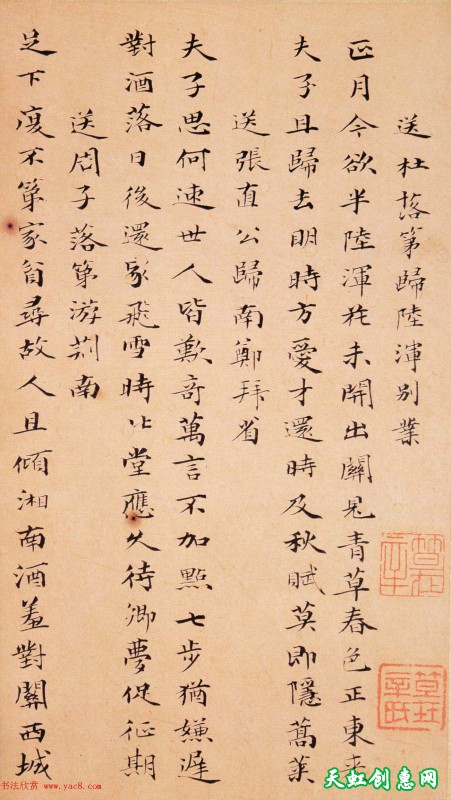 送杜落第歸陸渾別業
正月今欲半陸渾花未開出關見青草春色正東來
夫子且歸去明時方愛才還時及秋賦莫即隱蒿萊
送張直公歸南鄭拜省
夫子思何速世人皆歎奇萬言不加點七步猶嫌遲
對酒落日後還家飛雪時北堂應久待鄉夢促征期
送周子落第游荊南
足下復不第家貧尋故人且傾湘南酒羞對關西城
书法欣赏 www.yac8.com
天虹创惠网